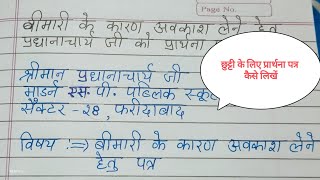 Page No.
बीमारी के कारण अवकाश लेने हेतु
प्रधानाचार्य जी को प्रार्थना
श्रीमान प्रधानाचार्य जी
मार्डन एस. पी. पब्लिक स्कूल
सैक्टर - 28, फरीदाबाद
विषय :⇒ बीमारी के कारण अवकाश लेने
हेतु पत्र
छुट्टी के लिए प्रार्थना पत्र
कैसे लिखें